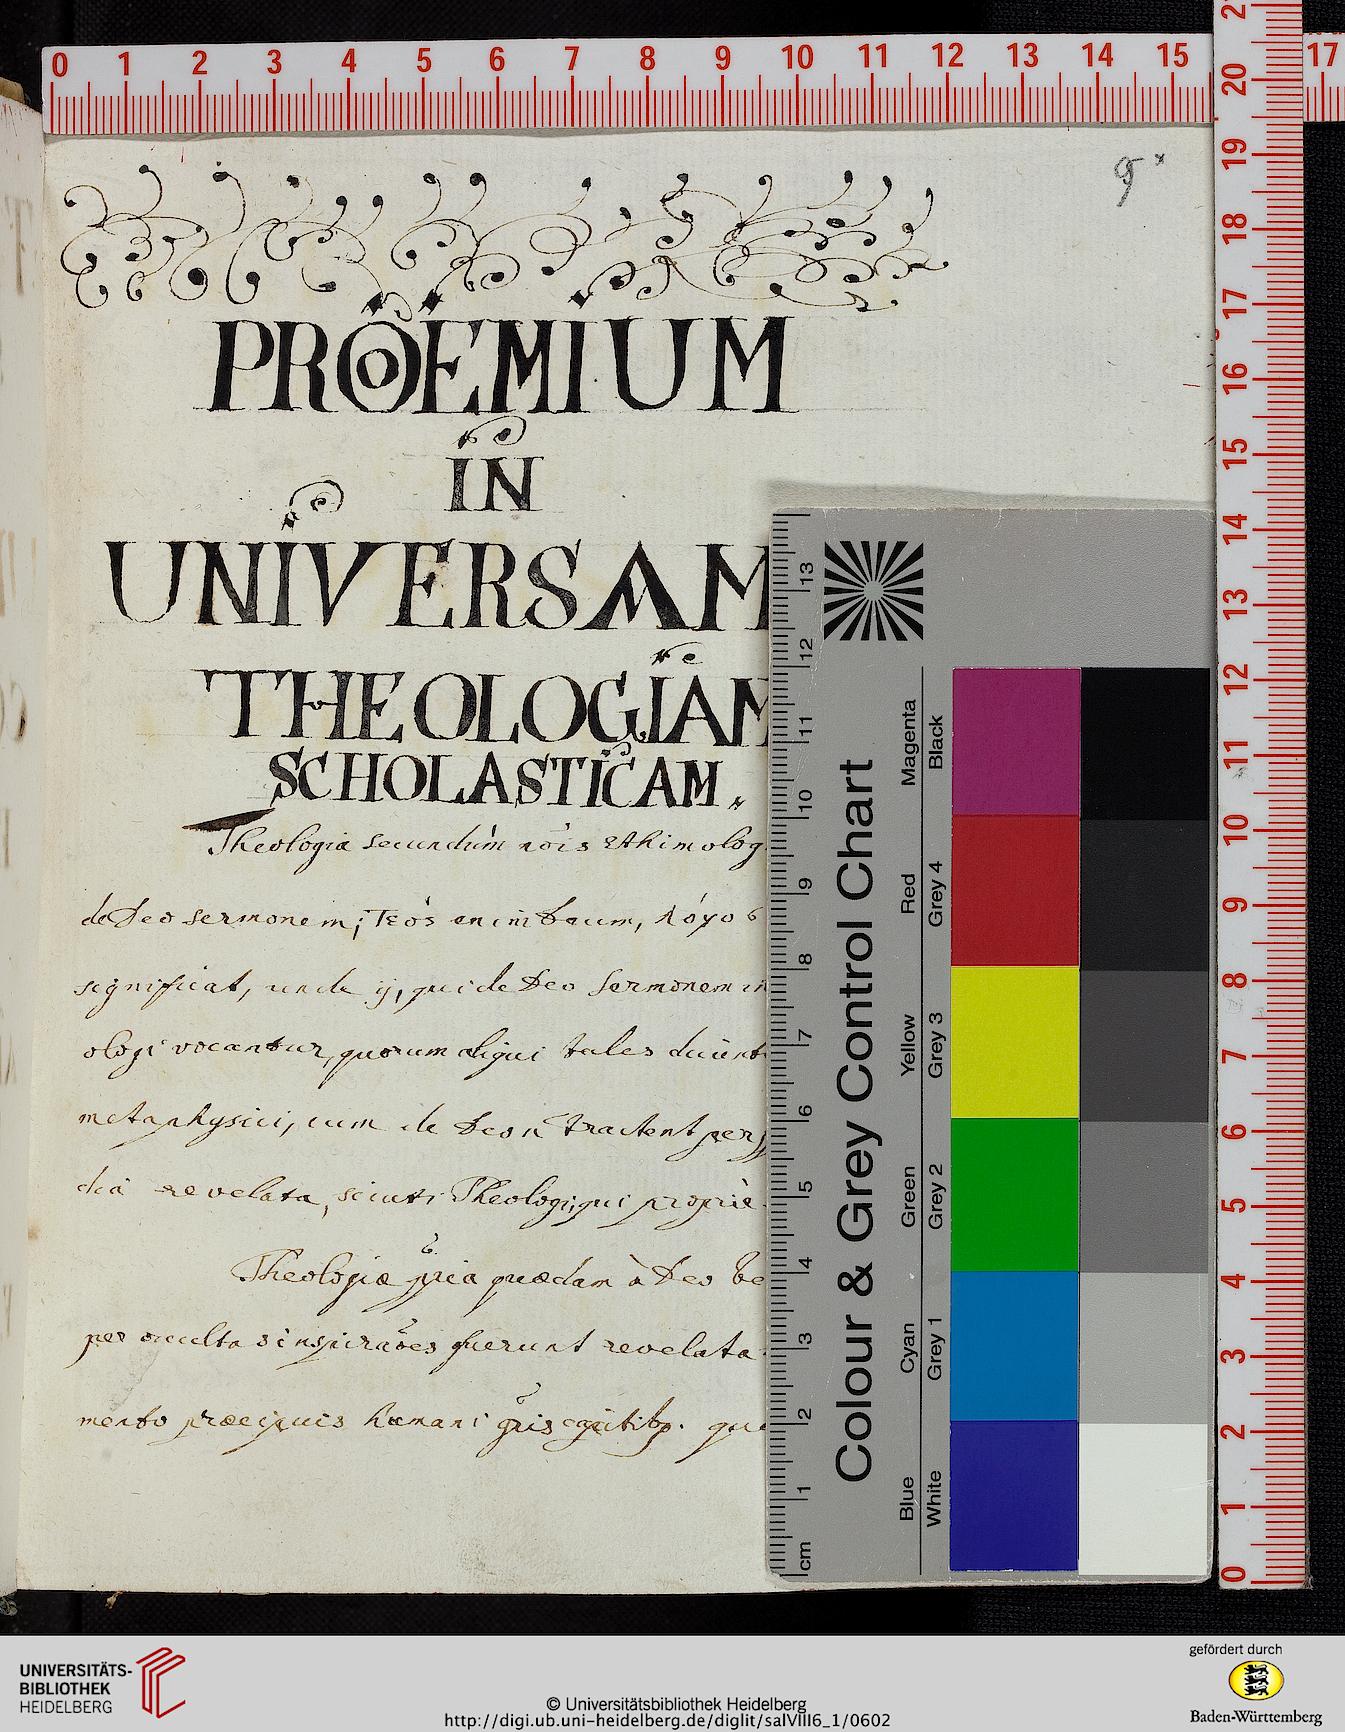 0 1 2 3 4 5 6 7 8 9 10 11 12 13 14 15 17
9
PROËMIUM
IN
UNIVERSAM
THEOLOGIAM
SCHOLASTICAM.
Theologia secundùm nõis ethimolog
de Deo sermonem; Teòs enim Deum, λόγοσ
significat, unde ij, qui de Deo sermonem in
ologi vocantur, quorum aliqui tales
metaphysici, cum de Deo tractent
revelata, sicuti Theologi, qui propriè
Theologiæ quædam à Deo
per occulta fuerunt revelata
præcipuis humani
21 20 19 18 17 16 15 14 13 12 11 10 9 8 7 6 5 4 3 2 1 0
Colour & Grey Control Chart
Blue Cyan Green Yellow Red Magenta
White Grey 1 Grey 2 Grey 3 Grey 4 Black
cm 1 2 3 4 5 6 7 8 9 10 11 12 13
UNIVERSITÄTS-
BIBLIOTHEK
HEIDELBERG
© Universitätsbibliothek Heidelberg
http://digi.ub.uni-heidelberg.de/diglit/salVIII6_1/0602
gefördert durch
Baden-Württemberg